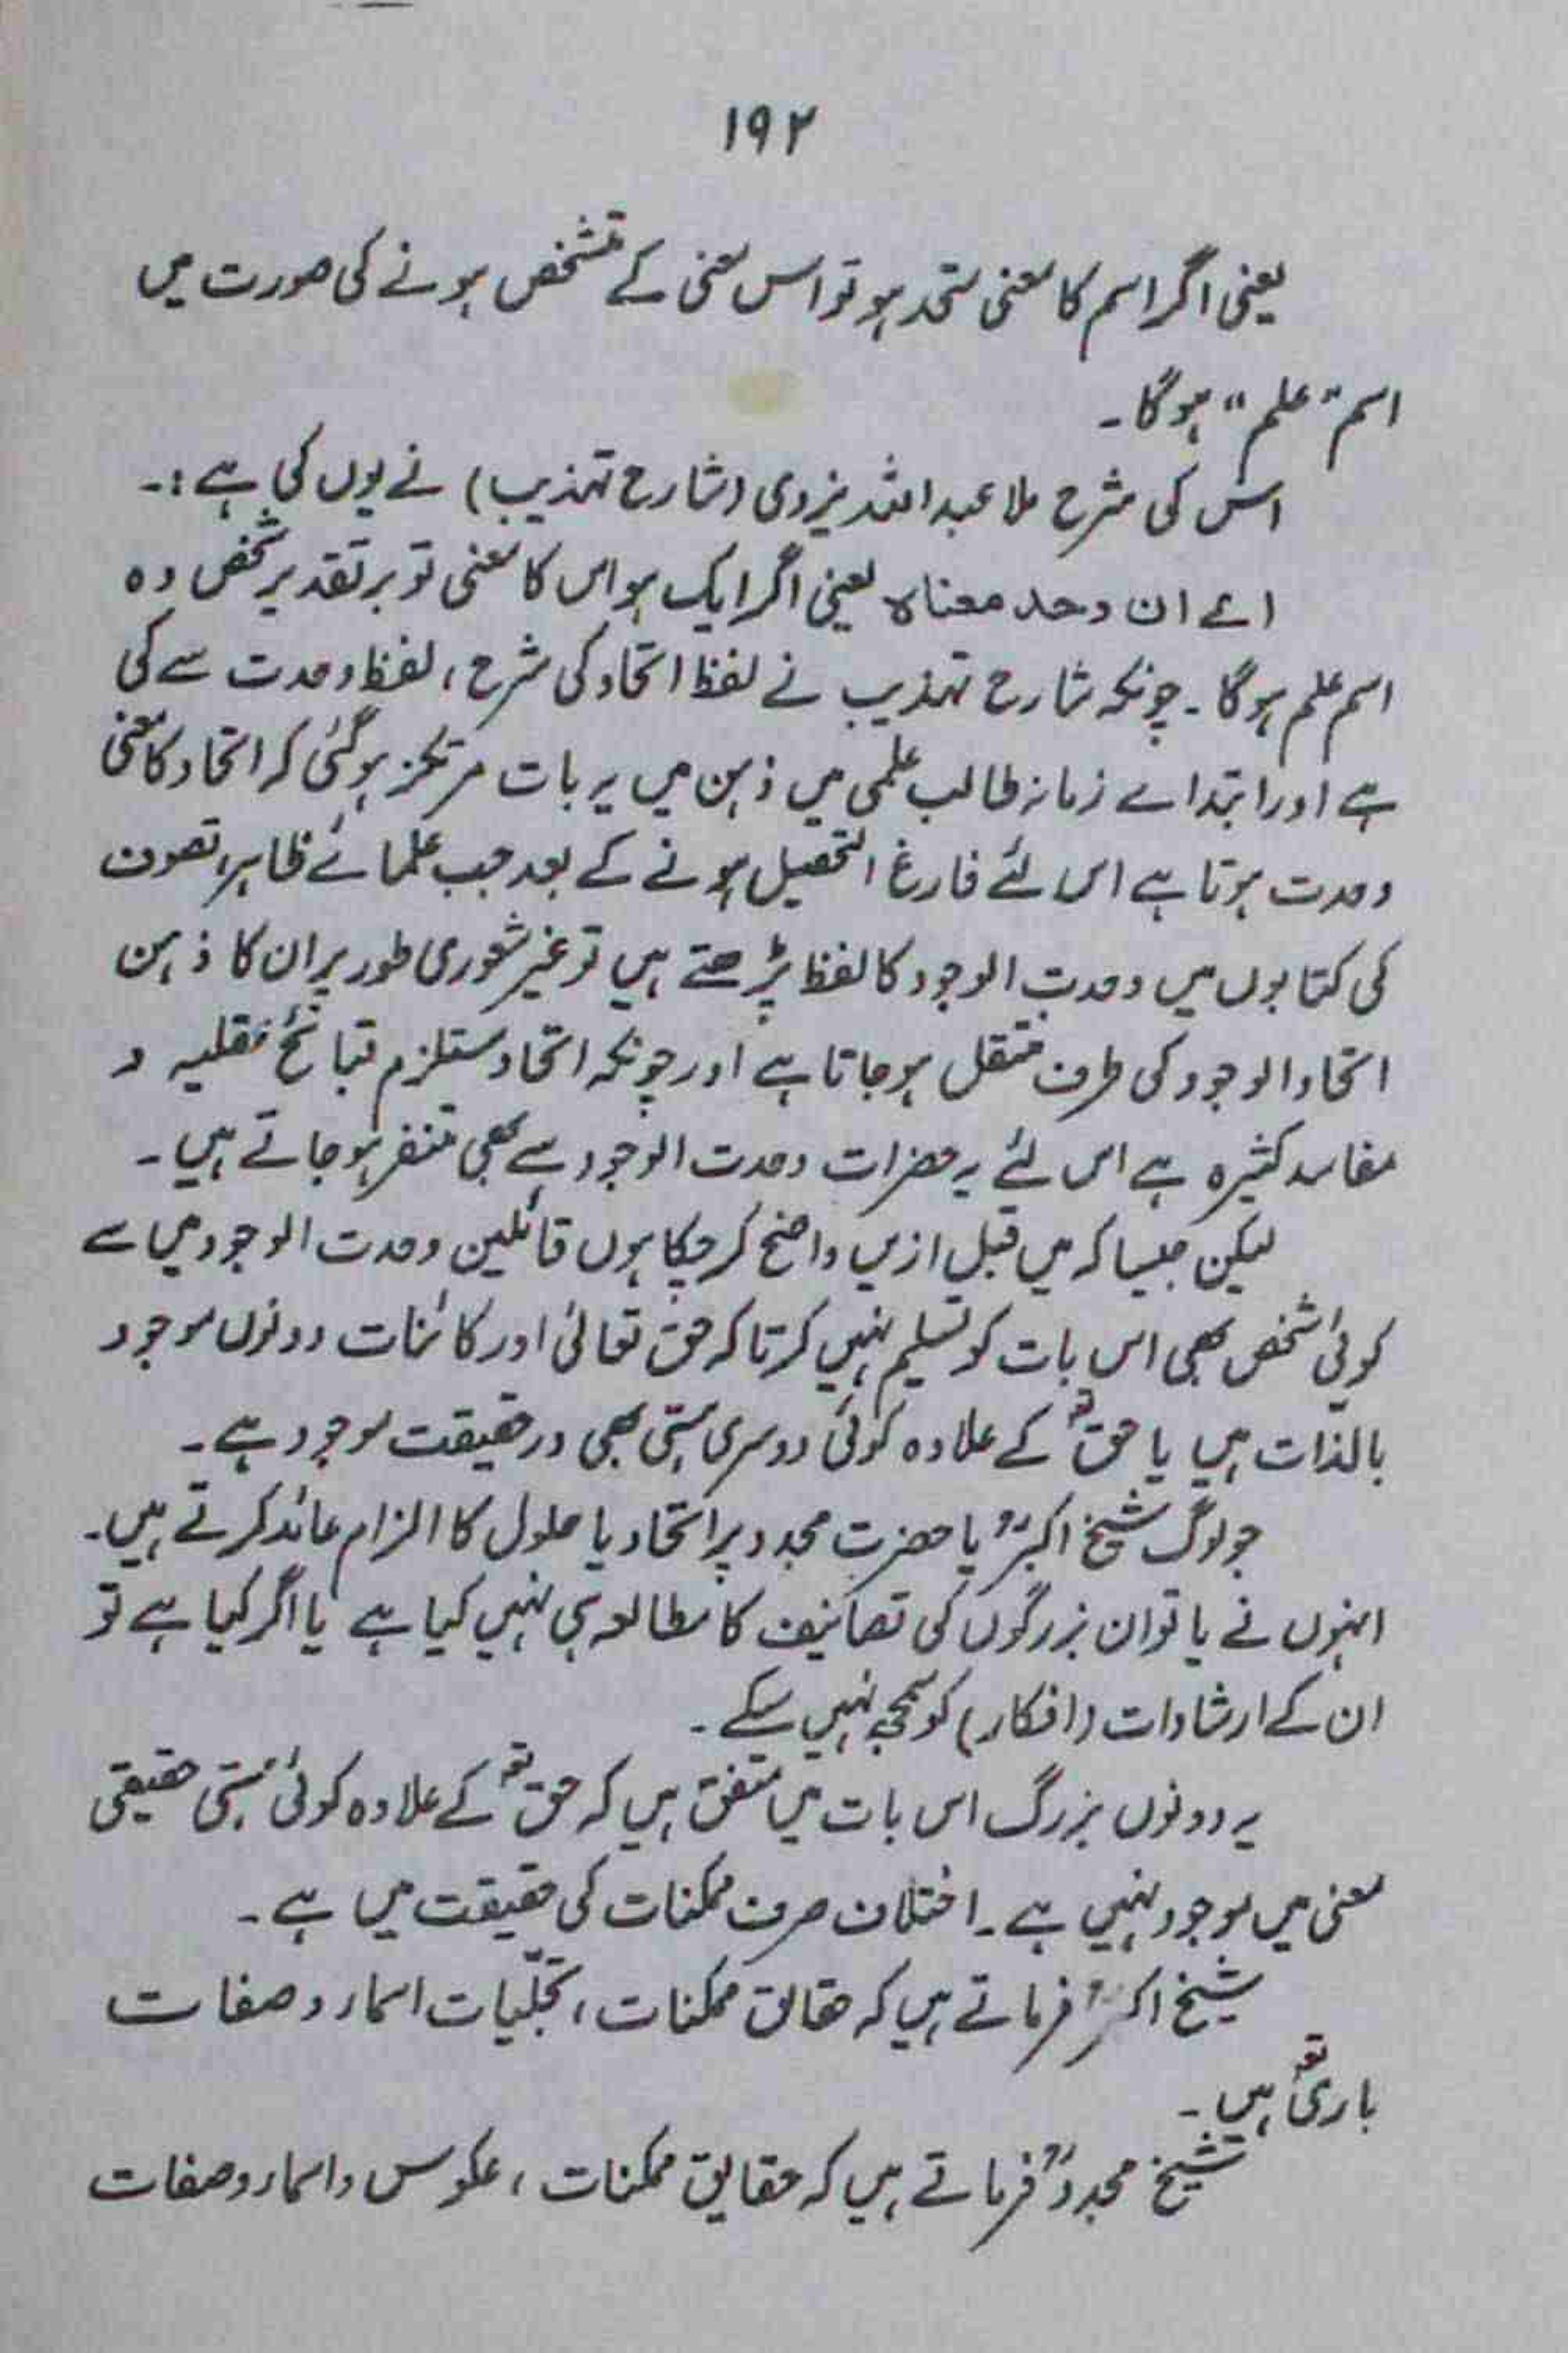 ۱۹۲
یعنی اگر اسم کا معنی متحد ہو تو اس معنی کے متشخص ہونے کی صورت میں
اسم "علم" ہوگا۔
اس کی شرح ملا عبداللہ یزدی (شارح تہذیب) نے یوں کی ہے :۔
اے ان وحد معناہ یعنی اگر ایک ہو اس کا معنی تو بر تقدیر تشخص وہ
اسم علم ہوگا۔ چونکہ شارح تہذیب نے لفظ اتحاد کی شرح، لفظ وحدت سے کی
ہے اور ابتدا سے زمانہ طالب علمی میں ذہن میں یہ بات مرتکز ہوگئی کہ اتحاد کا معنی
وحدت ہوتا ہے اس لئے فارغ التحصیل ہونے کے بعد جب علمائے ظاہر، تصوف
کی کتابوں میں وحدت الوجود کا لفظ پڑھتے ہیں تو غیر شعوری طور پر ان کا ذہن
اتحاد الوجود کی طرف منتقل ہو جاتا ہے اور چونکہ اتحاد مستلزم قبائح عقلیہ و
مفاسد کثیرہ ہے اس لئے یہ حضرات وحدت الوجود سے بھی متنفر ہو جاتے ہیں۔
لیکن جیسا کہ میں قبل ازیں واضح کر چکا ہوں قائلین وحدت الوجود میں سے
کوئی شخص بھی اس بات کو تسلیم نہیں کرتا کہ حق تعالیٰ اور کائنات دونوں موجود
بالذات ہیں یا حق تع کے علاوہ کوئی دوسری ہستی بھی درحقیقت موجود ہے۔
جو لوگ شیخ اکبرؒ یا حضرت مجدد پر اتحاد یا حلول کا الزام عائد کرتے ہیں۔
انہوں نے یا تو ان بزرگوں کی تصانیف کا مطالعہ ہی نہیں کیا ہے یا اگر کیا ہے تو
ان کے ارشادات (افکار) کو سمجھ نہیں سکے۔
یہ دونوں بزرگ اس بات میں متفق ہیں کہ حق تع کے علاوہ کوئی ہستی حقیقی
معنی میں موجود نہیں ہے۔ اختلاف صرف ممکنات کی حقیقت میں ہے۔
شیخ اکبرؒ فرماتے ہیں کہ حقائق ممکنات، تجلّیات اسماء و صفات
باری تع ہیں۔
شیخ مجددؒ فرماتے ہیں کہ حقایق ممکنات، عکوس و اسماء و صفات